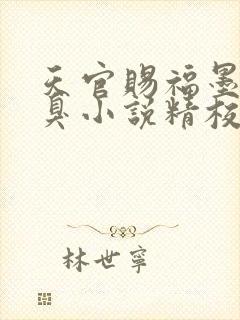 天官賜福墨
臭小說精校
林世寧